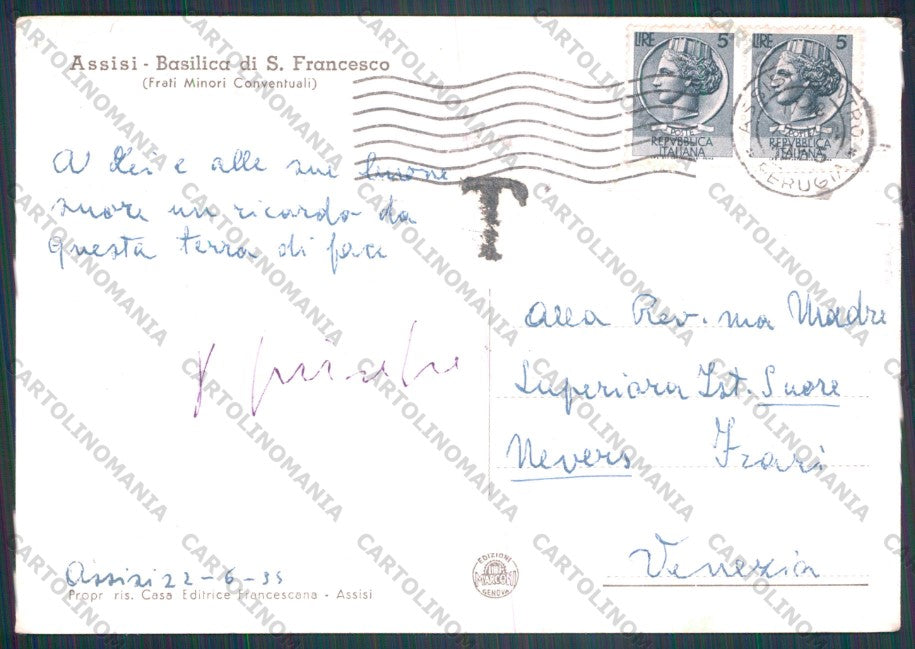 Assisi - Basilica di S. Francesco
(Frati Minori Conventuali)
LIRE 5
POSTE
REPVBBLICA
ITALIANA
LIRE 5
POSTE
REPVBBLICA
ITALIANA
PERUGIA
T
A Lei e alle sue buone
suore un ricordo da
questa terra di pace
alla Rev.ma Madre
Superiora Ist. Suore
Nevers Frari
Venezia
Assisi 22-6-55
Propr ris. Casa Editrice Francescana - Assisi
EDIZIONI
MARCONI
GENOVA
CARTOLINOMANIA